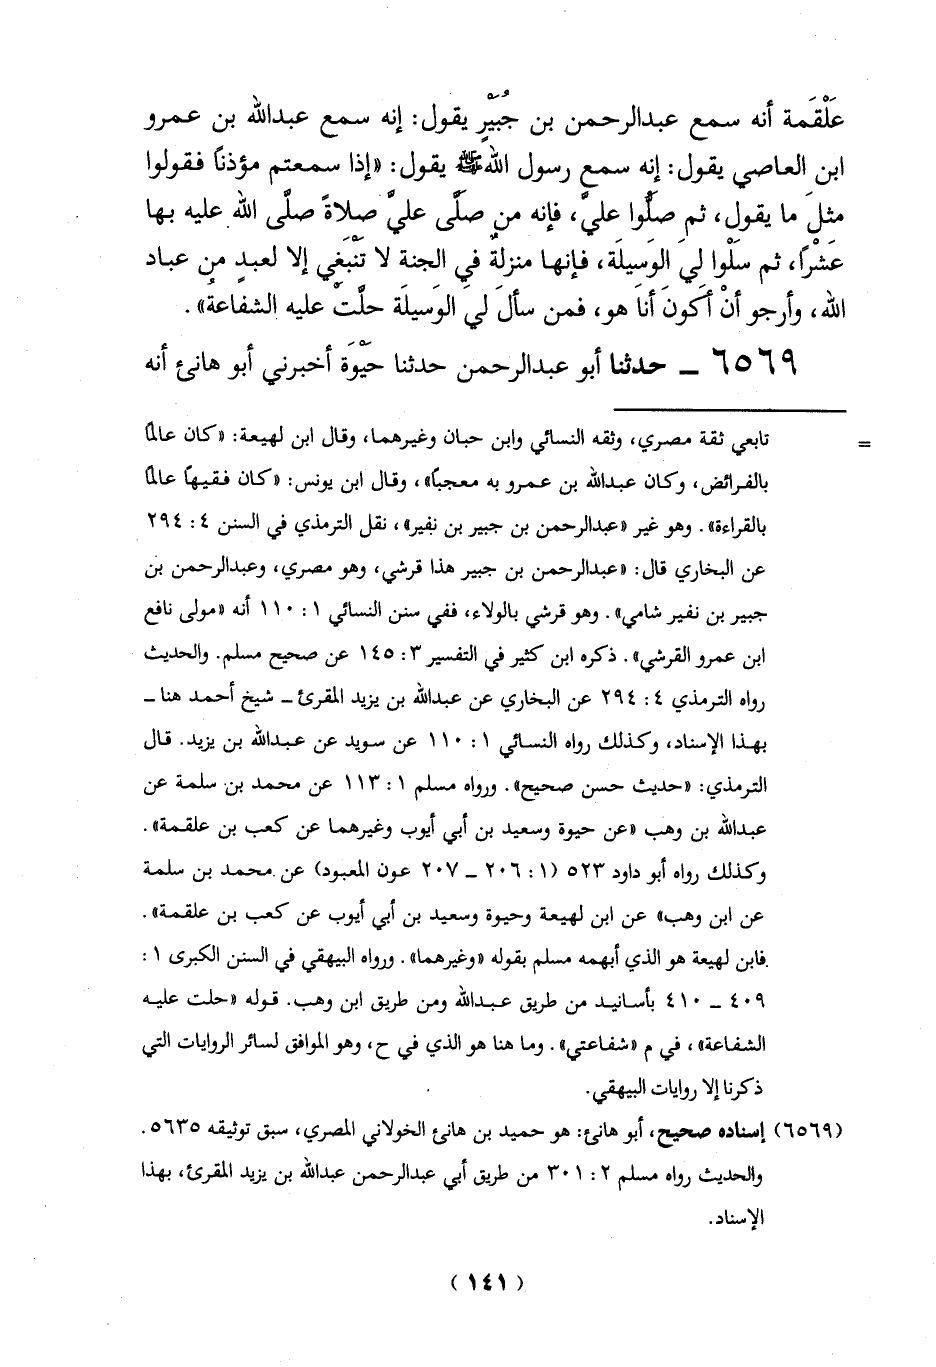 عَلْقَمة أنه سمع عبدالرحمن بن جُبَيْرٍ يقول: إنه سمع عبدالله بن عمرو
ابن العاصي يقول: إنه سمع رسول الله ﷺ يقول: «إذا سمعتم مؤذناً فقولوا
مثلَ ما يقول، ثم صلُّوا عليَّ، فإنه من صلَّى عليَّ صلاةً صلَّى الله عليه بها
عَشْراً، ثم سَلْوا لِيَ الوَسيلَة، فإنها منزلةٌ في الجنة لا تَنْبَغي إلا لعبدٍ من عباد
الله، وأرجو أنْ أكونَ أنا هو، فمن سألَ ليَ الوَسيلَة حلَّتْ عليه الشفاعةُ».
٦٥٦٩ ـ حدثنا أبو عبدالرحمن حدثنا حَيْوَة أخبرني أبو هانئ أنه
= تابعي ثقة مصري، وثقه النسائي وابن حبان وغيرهما، وقال ابن لهيعة: «كان عالماً
بالفرائض، وكان عبدالله بن عمرو به معجباً»، وقال ابن يونس: «كان فقيهاً عالماً
بالقراءة». وهو غير «عبدالرحمن بن جبير بن نفير»، نقل الترمذي في السنن ٤: ٢٩٤
عن البخاري قال: «عبدالرحمن بن جبير هذا قرشي، وهو مصري، وعبدالرحمن بن
جبير بن نفير شامي». وهو قرشي بالولاء، ففي سنن النسائي ١: ١١٠ أنه «مولى نافع
ابن عمرو القرشي». ذكره ابن كثير في التفسير ٣: ١٤٥ عن صحيح مسلم. والحديث
رواه الترمذي ٤: ٢٩٤ عن البخاري عن عبدالله بن يزيد المقرئ ـ شيخ أحمد هنا ـ
بهذا الإسناد، وكذلك رواه النسائي ١: ١١٠ عن سويد عن عبدالله بن يزيد. قال
الترمذي: «حديث حسن صحيح». ورواه مسلم ١: ١١٣ عن محمد بن سلمة عن
عبدالله بن وهب «عن حيوة وسعيد بن أبي أيوب وغيرهما عن كعب بن علقمة».
وكذلك رواه أبو داود ٥٢٣ (١: ٢٠٦ ـ ٢٠٧ عون المعبود) عن محمد بن سلمة
عن ابن وهب» عن ابن لهيعة وحيوة وسعيد بن أبي أيوب عن كعب بن علقمة».
فابن لهيعة هو الذي أبهمه مسلم بقوله «وغيرهما». ورواه البيهقي في السنن الكبرى ١:
٤٠٩ ـ ٤١٠ بأسانيد من طريق عبدالله ومن طريق ابن وهب. قوله «حلت عليه
الشفاعة»، في م «شفاعتي». وما هنا هو الذي في ح، وهو الموافق لسائر الروايات التي
ذكرنا إلا روايات البيهقي.
(٦٥٦٩) إسناده صحيح، أبو هانئ: هو حميد بن هانئ الخولاني المصري، سبق توثيقه ٥٦٣٥.
والحديث رواه مسلم ٢: ٣٠١ من طريق أبي عبدالرحمن عبدالله بن يزيد المقرئ، بهذا
الإسناد.
(١٤١)